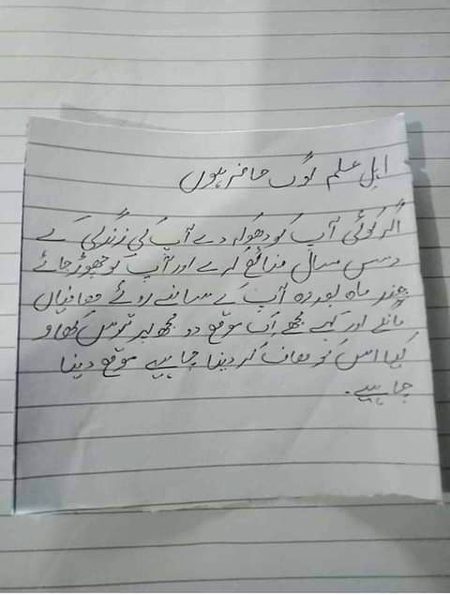 اہل علم لوگ حاضر ہوں
اگر کوئی آپ کو دھوکہ دے آپ کی زندگی کے
دس سال ضائع کرے اور آپ کو چھوڑ جائے
چند ماہ بعد وہ آپ کے سامنے روئے معافیاں
مانگے اور کہے مجھے اک موقع دو مجھ پر ترس کھاو
کیا اس کو معاف کر دینا چاہیے موقع دینا
چاہیے.